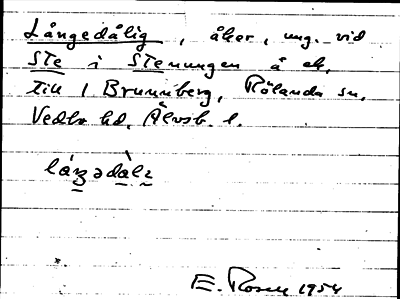 Långedålig, åker, ung. vid
STe i STenungen å ek.
Till 1 Brunnberg, Rölanda sn,
Vedbo hd, Älvsb. l.
E. Rosen 1954